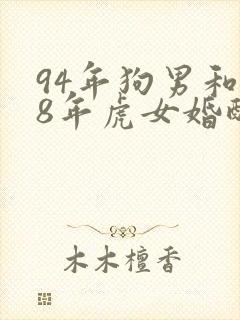 94年狗男和
8年虎女婚配
木木檀香